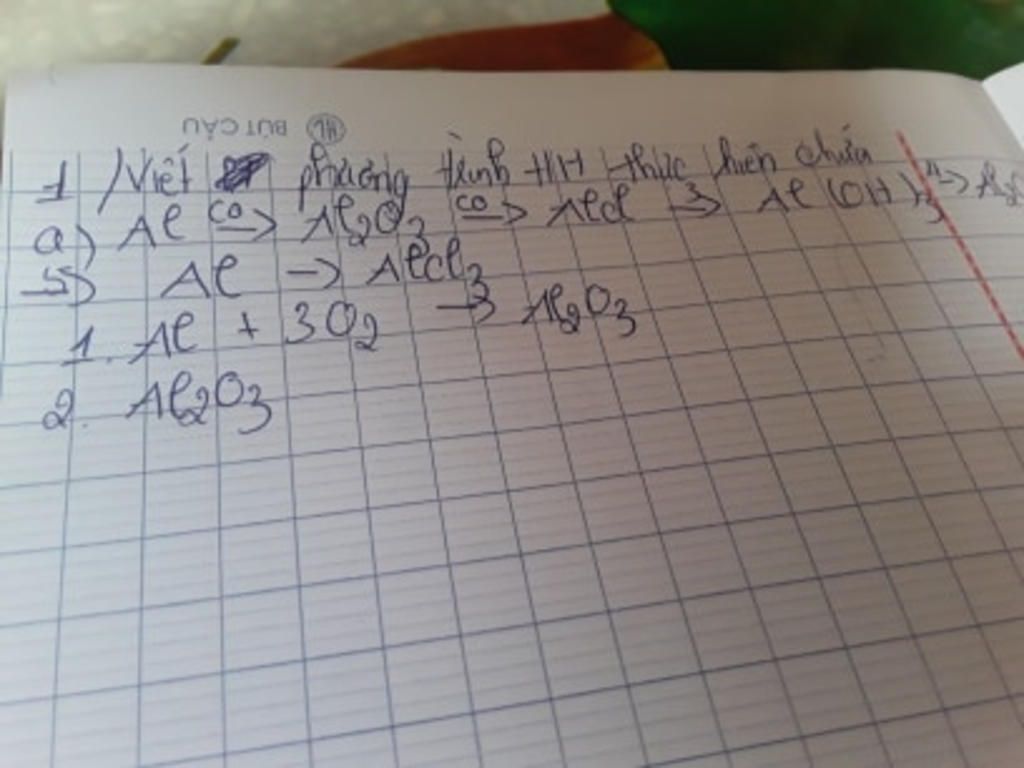 BÚT CẬU
1 / Viết phương trình HH thực hiện chuỗi
a) Al (1)→ Al2O3 (2)→ AlCl3 → Al(OH)3 → Al2O
5) Al → AlCl3
1. Al + 3O2 → Al2O3
2. Al2O3